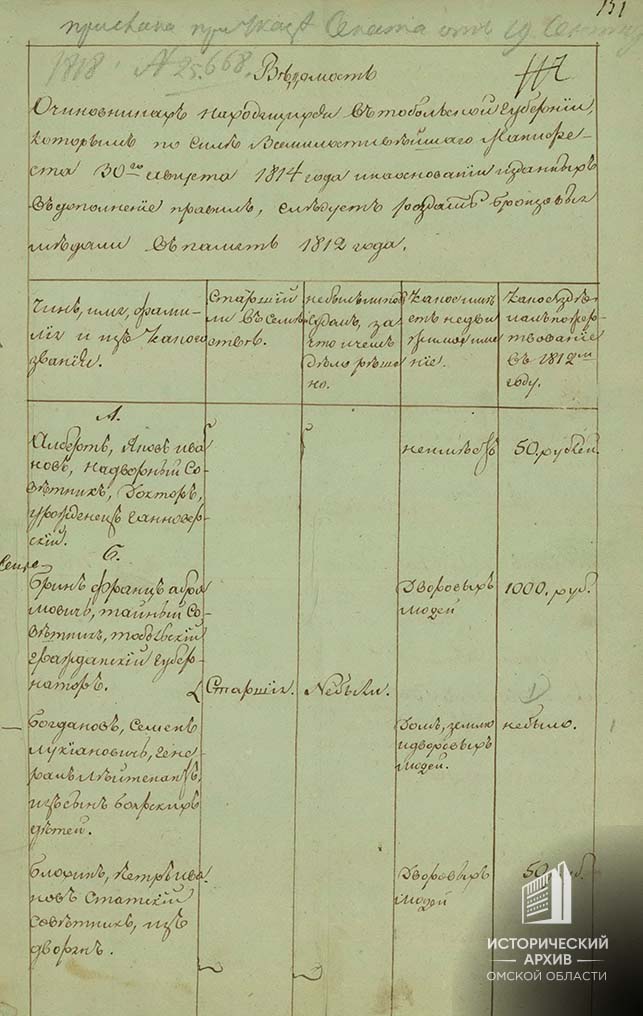 151
прислана при Указе Сената отъ 19 Сентяб
1818. № 25.668.
Вѣдомость
О чиновникахъ находящихся въ тобольской губерніи,
которымъ по силѣ Всемилостивѣйшаго Манифе-
ста 30го августа 1814 года и на основаніи изданныхъ
въ дополненіе правилъ, слѣдуетъ роздать бронзовыя
мѣдали въ память 1812 года.
Чинъ, имя, фами-
лія и изъ какого
званія.
Старшій
ли въ семѣ-
ствѣ.
небылъ ли подъ
судомъ, за
что и чемъ
дѣло рѣше-
но.
Какое имѣ-
етъ недви
жимое име
ніе.
Какое здѣ-
лалъ пожер-
твованіе
въ 1812 м
году.
А.
Албертъ, Яковъ ива
новъ, надворный Со-
вѣтникъ, Докторъ,
урожденецъ ганновер-
скій.
неимѣетъ
50. рублей
Б.
Бринъ францъ абра
мовичъ, тайный Со-
вѣтникъ, тобольскій
гражданскій губер-
наторъ.
Старшій.
Небылъ.
Дворовыхъ
людей
1000. руб.
Богдановъ, Семенъ
лукіановичъ, гене-
ралъ лѣйтенантъ,
изъ сынъ боярскихъ
дѣтей.
Домъ, землю
и дворовыхъ
людей.
небыло.
Блохинъ, петръ ива
новъ Статскій
совѣтникъ, изъ
дворянъ.
Дворовыхъ
людей
50 руб.
ИСТОРИЧЕСКИЙ
АРХИВ
ОМСКОЙ ОБЛАСТИ